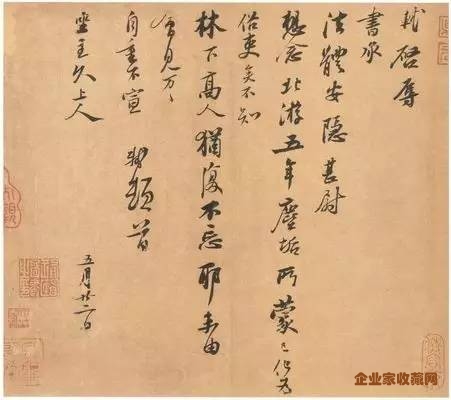 軾啓辱
書承
法體安隱甚慰
想念北游五年塵垢所蒙已化爲
俗吏矣不知
林下高人猶復不忘耶未由
會見万万
自重不宣 軾頓首
坐主久上人
五月廿二日
企业家收藏网